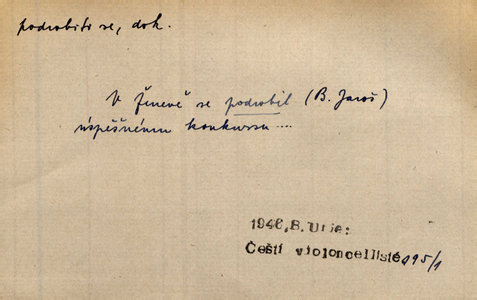 podrobiti se, dok.
V Ženevě se podrobil (B. Jaroš)
úspěšnému konkursu....
1946, B. Urie:
Čeští violoncellisté 195/1